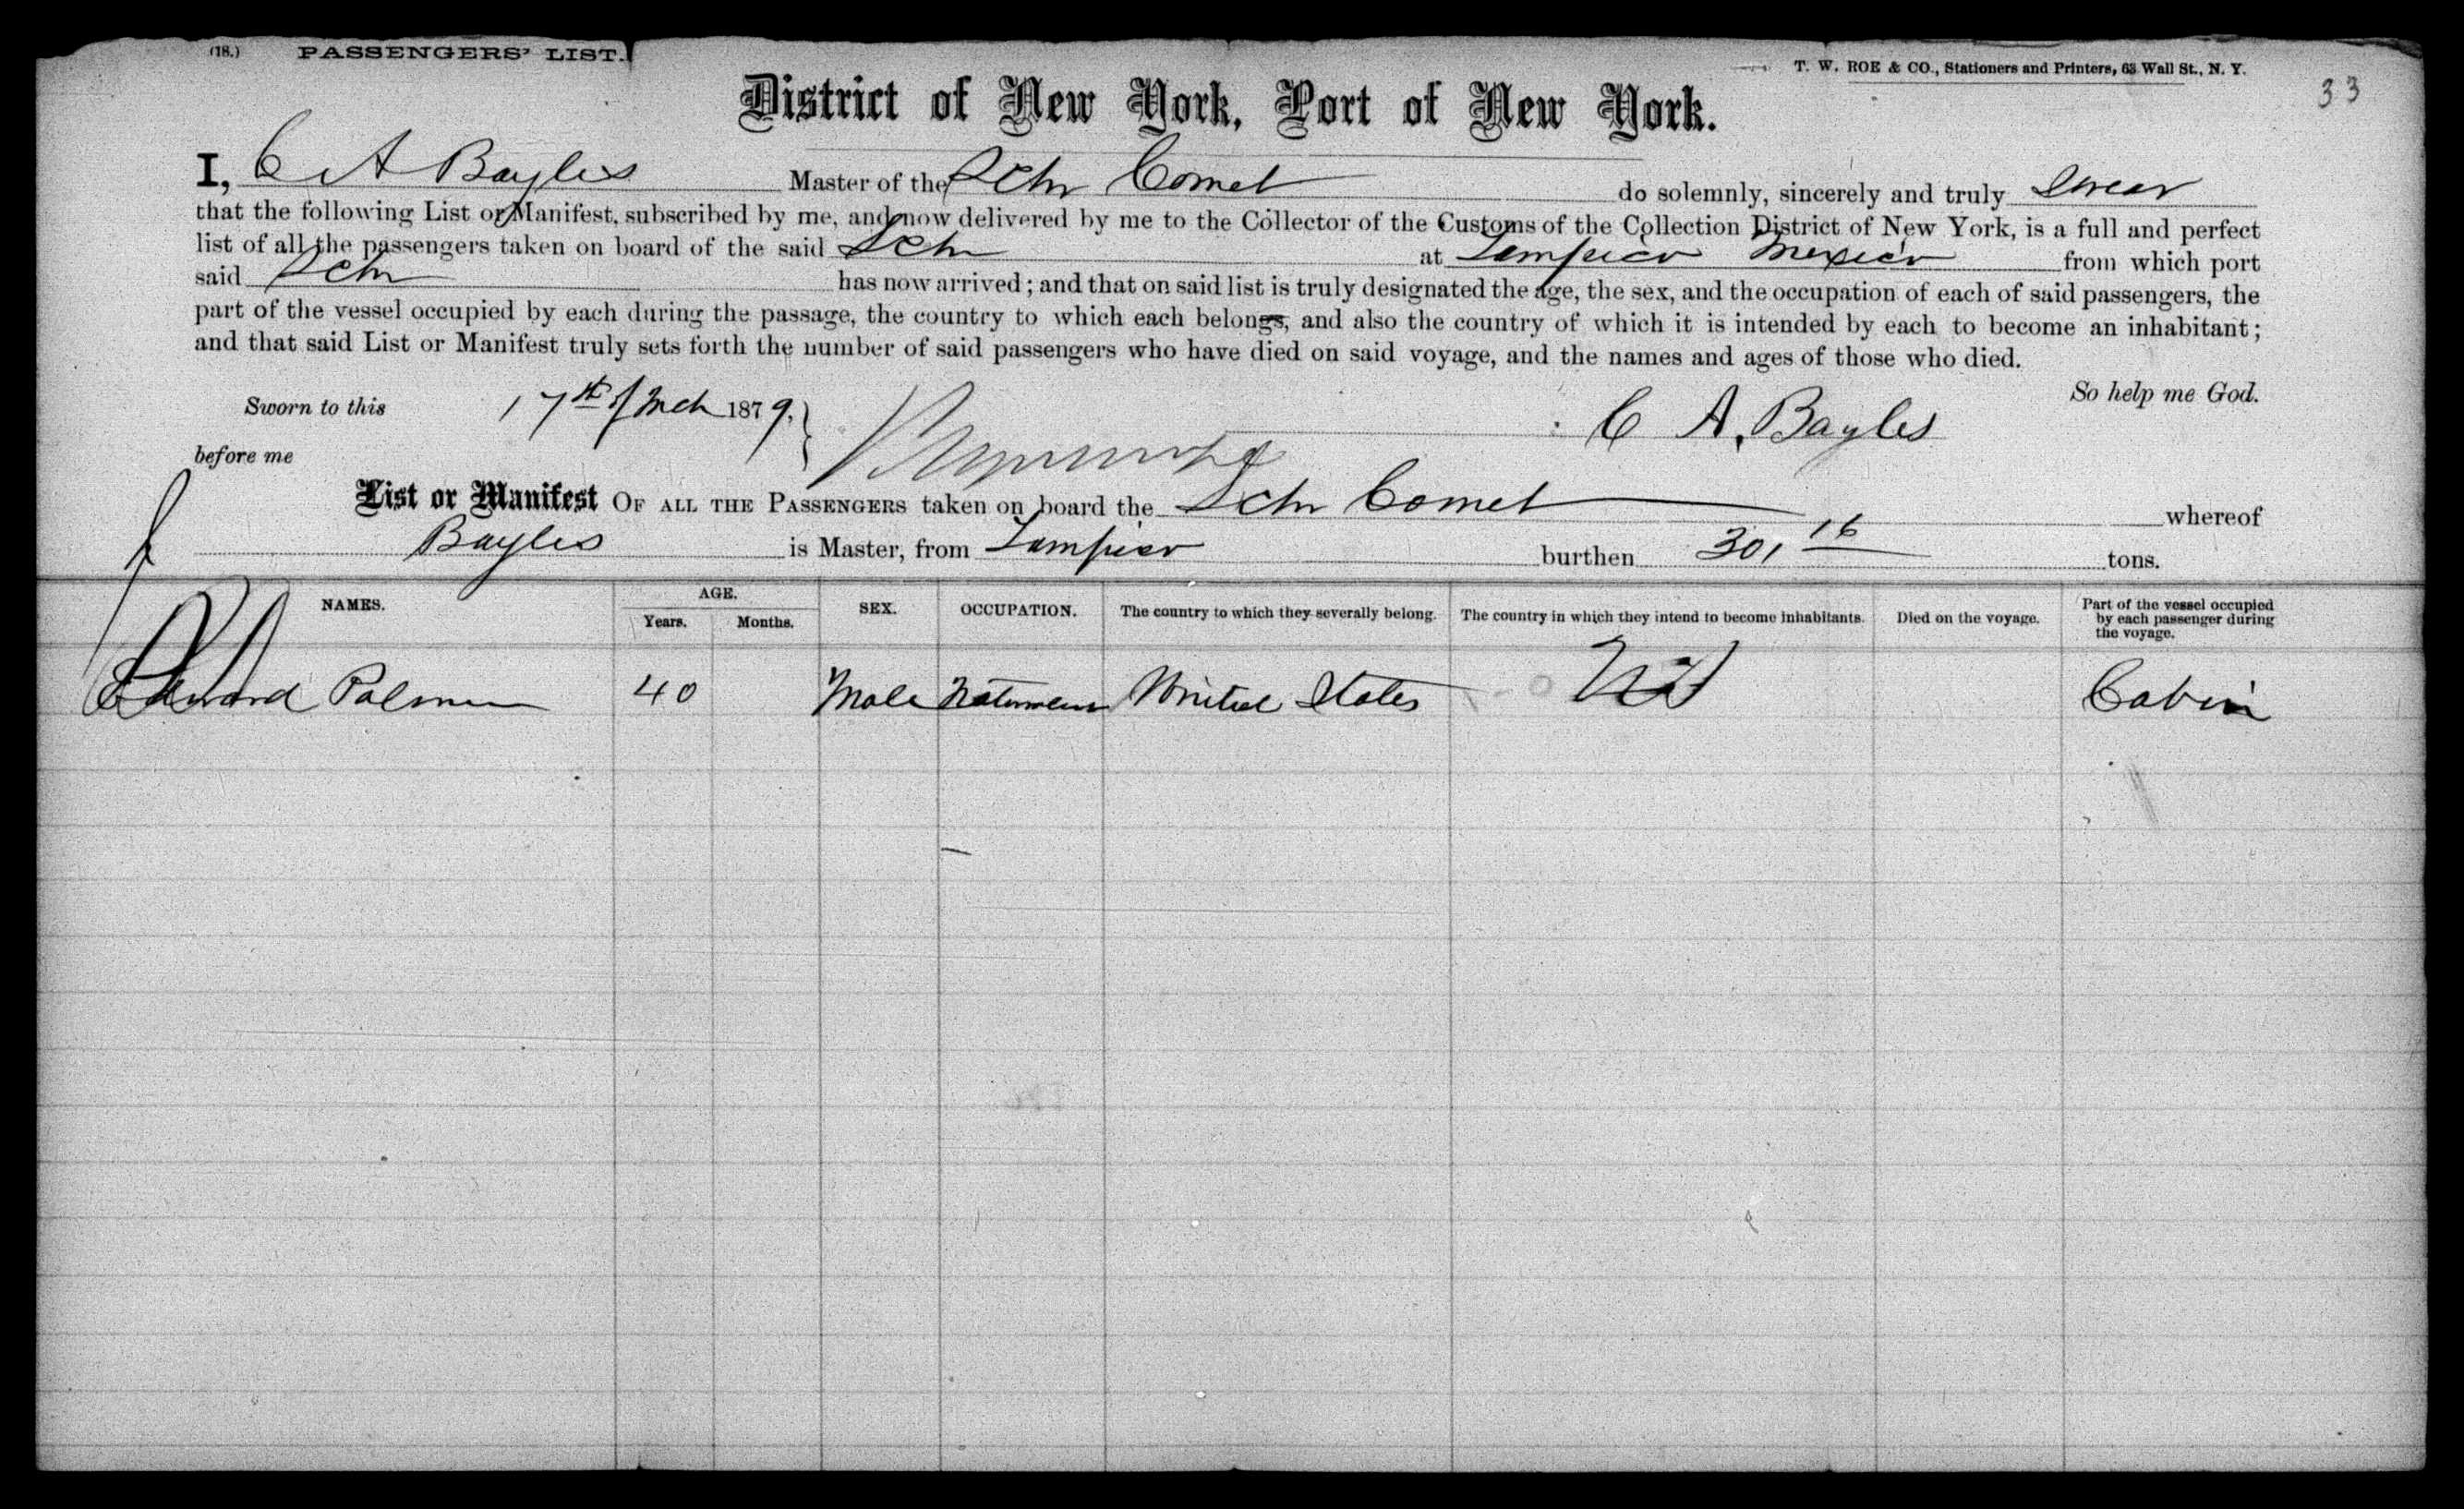 (18.) PASSENGERS' LIST.
T. W. ROE & CO., Stationers and Printers, 63 Wall St., N. Y.
33
District of New York, Port of New York.
I, C A Bayles Master of the Schr Comet do solemnly, sincerely and truly swear
that the following List or Manifest, subscribed by me, and now delivered by me to the Collector of the Customs of the Collection District of New York, is a full and perfect
list of all the passengers taken on board of the said Schr at Tampico Mexico from which port
said Schr has now arrived; and that on said list is truly designated the age, the sex, and the occupation of each of said passengers, the
part of the vessel occupied by each during the passage, the country to which each belongs, and also the country of which it is intended by each to become an inhabitant;
and that said List or Manifest truly sets forth the number of said passengers who have died on said voyage, and the names and ages of those who died.
So help me God.
Sworn to this 17th of Mch 1879.
C A. Bayles
before me
List or Manifest OF ALL THE PASSENGERS taken on board the Schr Comet whereof
Bayles is Master, from Tampico burthen 301 16 tons.
NAMES. AGE. Years. Months. SEX. OCCUPATION. The country to which they severally belong. The country in which they intend to become inhabitants. Died on the voyage. Part of the vessel occupied by each passenger during the voyage.
Edward Palmer 40 Male United States Cabin